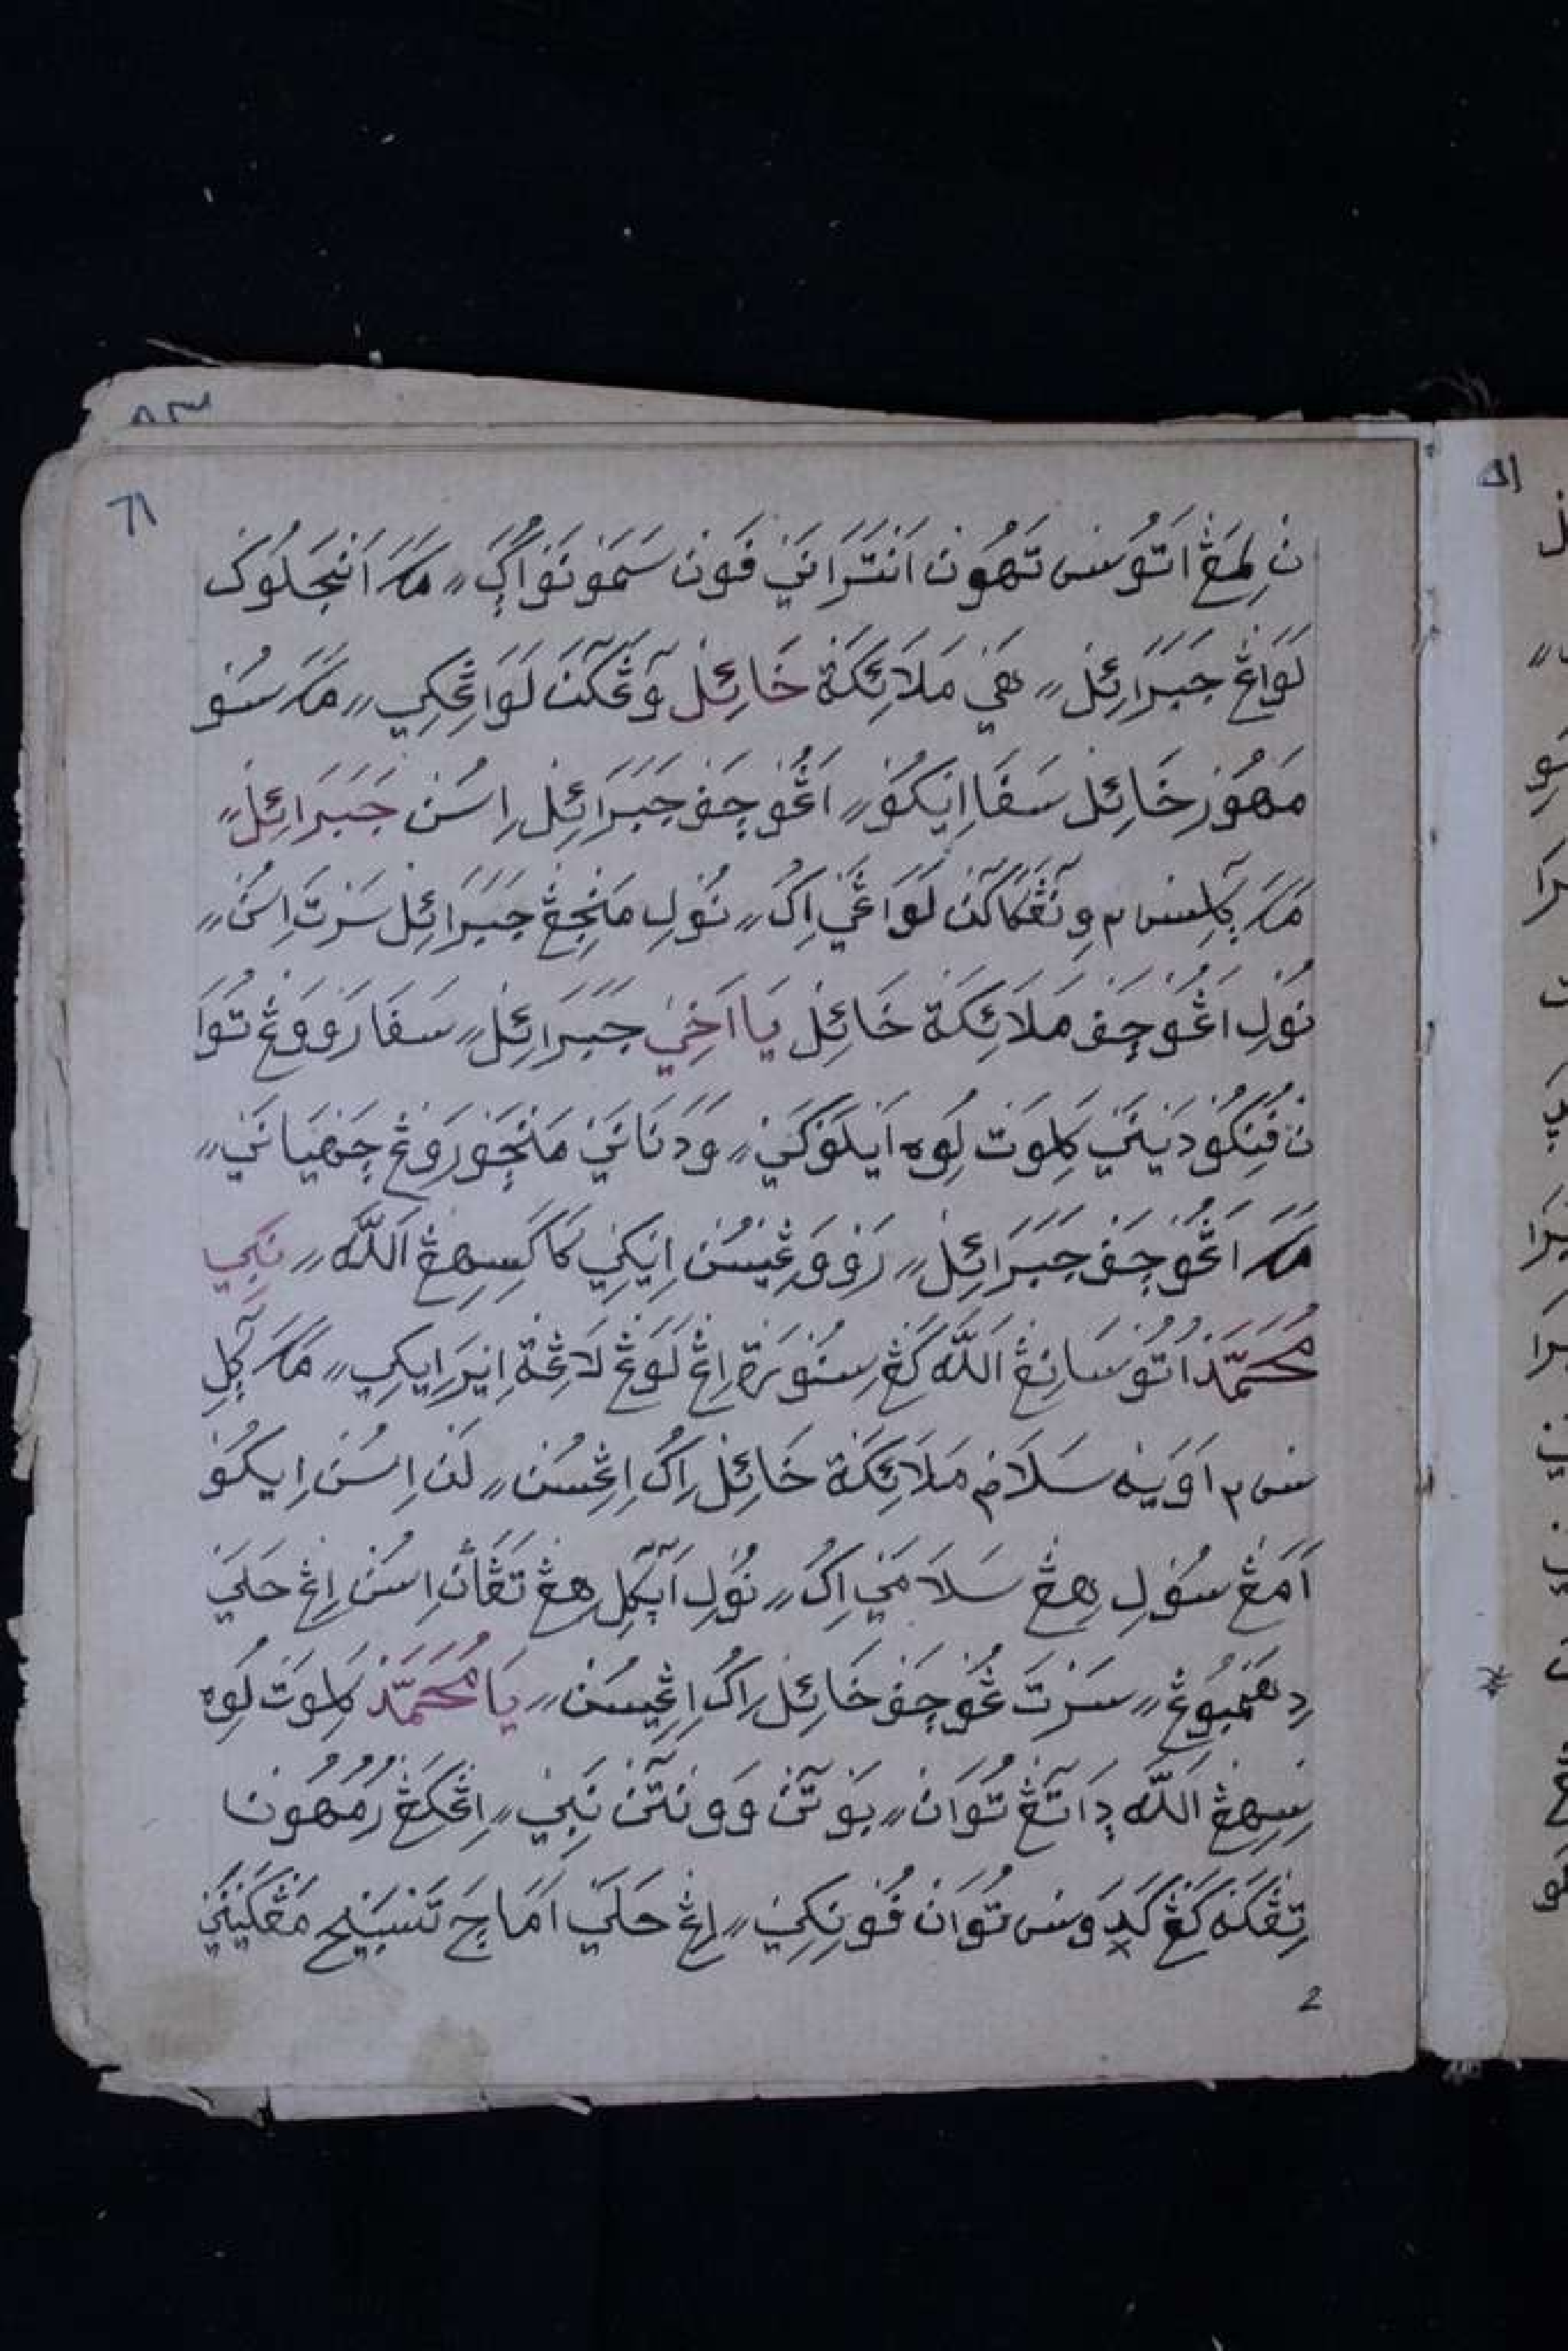 ٦١
نِ لِمَڠْ اَتُوْسْ تَهُوْن اَنْتَرَانَيْ فَوْن سَمَوْنَوْ اُڮِ〃 مَكَ اَنْجَلُوْكْ
لَوَاڠْ جَبَرَائِلْ〃 هَيْ مَلَائِكَةْ خَائِلْ وٓڠَكٓنْ لَوَاڠِكِي〃 مَكَ سُوْ
مَهُوْرْ خَائِلْ سَفَا اِيْكُوْ〃 اَڠُوْچَفْ جَبَرَائِلْ اِسُنْ جَبَرَائِلْ〃
مَكَ نُوْلِ مَنْجِڠْ جَبَرَائِلْ سَرْتَ اِسُنْ〃
نُوْلِ اَڠُوْچَفْ مَلَائِكَةْ خَائِلْ يَا اَخِيْ جَبَرَائِلْ〃 سَفَا رَوْوَڠْ تُوَا
نْ فُنِكُوْ دَيْنَيْ كِلِوَتْ لُوِه اَيْلَوْكَيْ〃 وَدَنَانَيْ مَنْچَوْرَوْڠْ چَهْيَانَيْ〃
مَكَ اَڠُوْچَفْ جَبَرَائِلْ〃 رَوْوَڠِيْسُنْ اِيْكِيْ كَاكَسِهِڠْ اَللّٰهْ〃 نَبِي
مُحَمَّدْ اُتُوْسَانِڠْ اَللّٰهْ كَڠْ سِنُوْڠْ لَاڠِةْ اِيْرَ اِيْكِي〃 مَكَ
سْ م اَوَيْه سَلَامْ مَلَائِكَةْ خَائِلْ اِڮُ اِڠِسُنْ〃 لَنْ اِسُنْ اِيْكُوْ
اَمَڠْسُوْلِ هِڠْ سَلَامَيْ اِڮُ〃 نُوْلِ هِڠْ تَڠَانْ اِسُنْ اِڠْ حَلَيْ
دِ هَمْبُوْڠْ〃 سَرْتَ ڠُوْچَفْ خَائِلْ اِڮُ اِڠِيْسُنْ〃 يَا مُحَمَّدْ كِلِوَتْ لُوِه
سِهِڠْ اَللّٰهْ دِاتٓڠْ تُوَانْ〃 بَوْتٓنْ وَوْنْتٓنْ نَبِيْ〃 اِڠْكَڠْ رُمُهُوْن
تِڤْكَهْ كَڠْ كَدِ وَسْ تُوَانْ فُوْنِكِيْ〃 اِڠْ حَلَيْ اَمَاچَ تَسْبَيْحْ
2